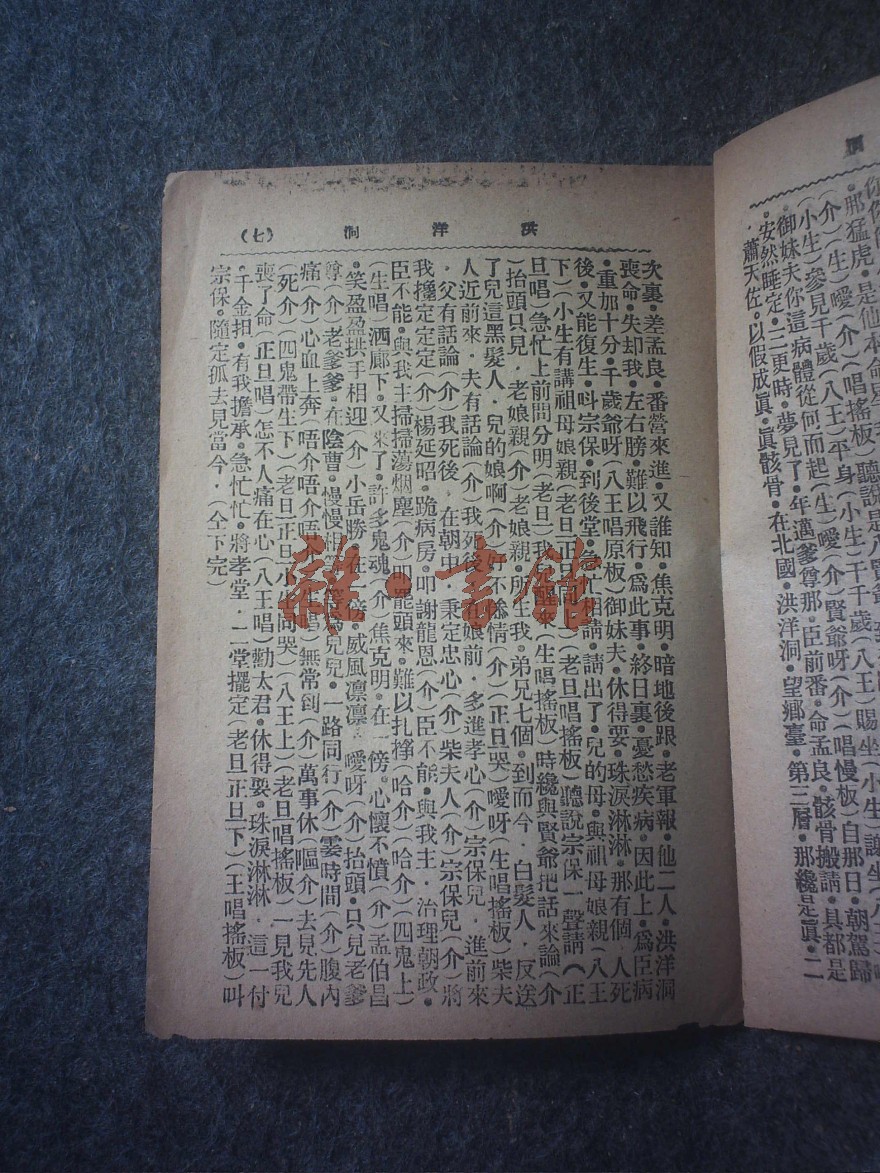 洞
那猛虎●是他本命星
(介)(生)噯(介)(唱搖板)聽說是八賢爺
(小生)參見千歲(八王)平身(小生)千千歲(八王)賜坐(小生)謝坐(八王)
御妹夫你這病體從何而起(生)噯(介)賢爺呀(介)(唱慢板)自那日●朝駕歸
安然睡定●二更時●夢見了●年邁爹尊那●臣前番●命孟良●骸骨搬請●具都是
蕭天佐●以假成眞●眞骸骨●在北國●洪洋洞●望鄉臺●第三層●那纔是眞●二
洪洋洞 (七)
次裏●差孟良●番營來進●又誰知●焦克明●暗地後跟●老軍報●他二人●洪洋洞
喪命●失却我●左右膀●難以飛行●爲此事●終日裏●憂愁疾病●因此上●爲臣病
●重加十分●千歲爺呀(八王唱原板)御妹夫●休得要●珠淚淋淋●那有個●人死
後●又能復生●呌宗保●到後堂●急忙 請●請出了●兒的母●與祖母娘親(八王
下)(小生有講祖母娘親(老旦正旦同上)(老旦唱搖板)聽說宗保一聲請(正
旦唱)急忙上前問分明(老旦)我 醒(介)(生唱搖板)時纔與賢爺把話來論(介
)抬頭只見●老娘親(介)老娘親●所生我●弟兄七個●到而今●白髮人●反送
了兒這黑髮人●兒的娘啊(介) 不 情(介)(正旦哭)噯呀(生唱搖板)柴夫
人近前來●夫有話論(介)我死後● 娘前●多進孝心(介)宗保兒●進前來
●父有話論(介)我死後●在朝中●秉定忠心(介)柴夫人(介)宗保兒(介)將
我攙定定定(介)楊延昭●跪病房●叩謝龍恩(介)臣不能●與我主●治理朝政●
臣不能●與我主掃掃蕩烟塵(介)明 罷頭來●難以扎掙(哈介)(哈介)(四鬼上)
(生唱)洒廊下●又來了●許多鬼魂(介)焦克明●在一傍●心懷不憤(介)孟伯昌
●笑盈盈拱手相迎(介)小岳勝●在一傍●威風凛凛●噯呀(介)抬頭●只見老爹
尊(介)老爹爹●在陰曹●慢慢相等●等爲兒●一路同行(介)霎時間(介)腹內
痛(介)心血上奔(唔介唔介唔介)( 唱)無常到(介)萬事休(嘔介)去見先人
(死介)(四鬼帶生下)(老旦正旦小生同哭)(八王上)(老旦唱搖板)一見我兒
喪了命(正旦唱)怎不人痛在心(八王唱)勸太君●休得要●珠淚淋淋●這一付
●千金担●有我擔承●急忙忙●將孝堂●二堂擺定(老旦正旦下)(王唱搖板)呌
宗保●隨定孤去見當今●(仝下完)
雜·書館